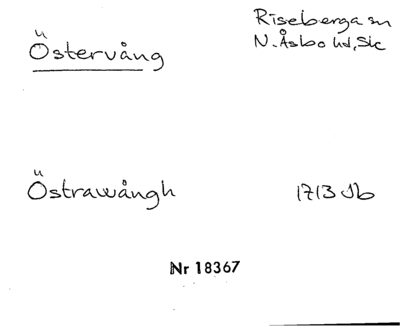 Östervång
Riseberga sn
N. Åsbo hd, Sk
Östrawångh
1713 Jb
Nr 18367